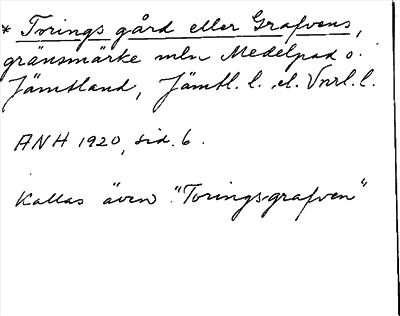 * Torings gård eller Grafvens,
gränsmärke mln Medelpad o.
Jämtland, Jämtl. l. el. Vnrl. l.
ANH 1920, sid. 6.
Kallas även "Toringsgrafven"